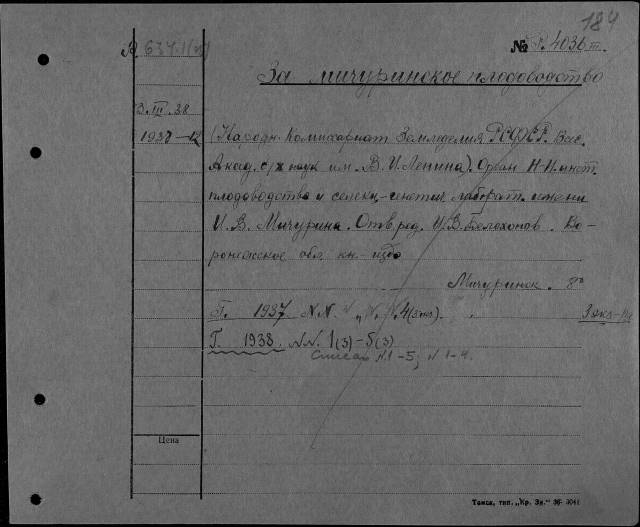 184
R 634.1(05)
№ Р. 4036 т.
За мичуринское плодоводство
В. III. 38
1937-
(Народн. Комиссариат Земледелия РСФСР. Вес.
Акад. с/х наук им. В. И. Ленина). Орган Н-И. инст.
плодоводства и селекц-генетич. лаборат. имени
И. В. Мичурина. Отв. ред. И. В. Белохонов. Во-
ронежское обл. кн-изд-во
Мичуринск. 8°
Г. 1937 N.N. 4 (3 экз).
Г. 1938. N.N. 1(3)-5(3)
Списан N. 1-5; N 1-4.
Цена
Томск, тип. „Кр. Зн.“ 36- 3041